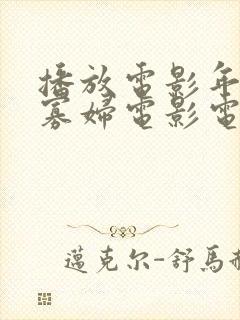 播放電影年
寡婦電影電
邁克尔-舒馬赫